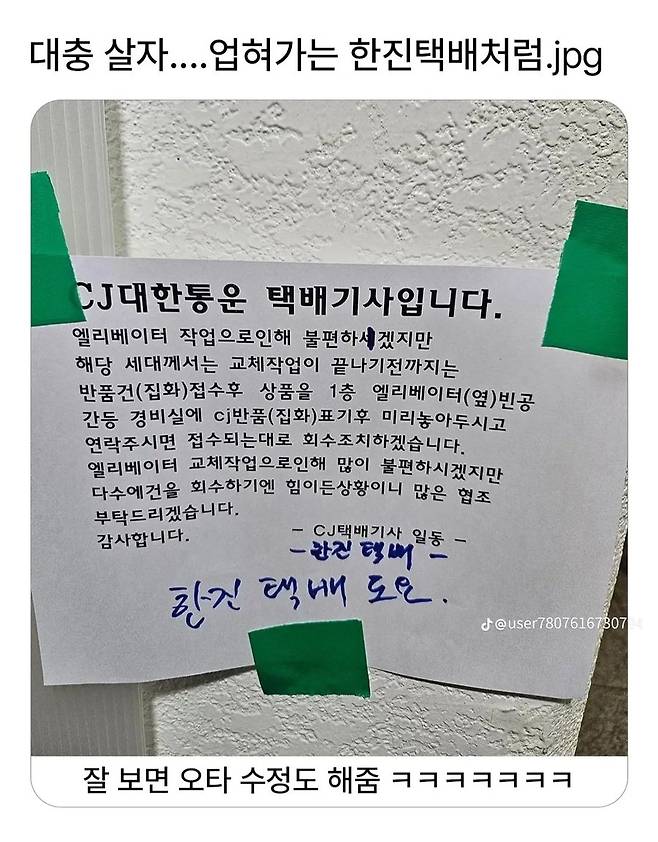 대충 살자....업혀가는 한진택배처럼.jpg
CJ대한통운 택배기사입니다.
엘리베이터 작업으로인해 불편하시겠지만
해당 세대께서는 교체작업이 끝나기전까지는
반품건(집화)접수후 상품을 1층 엘리베이터(옆)빈공
간등 경비실에 cj반품(집화)표기후 미리놓아두시고
연락주시면 접수되는대로 회수조치하겠습니다.
엘리베이터 교체작업으로인해 많이 불편하시겠지만
다수에건을 회수하기엔 힘이든상황이니 많은 협조
부탁드리겠습니다.
감사합니다.
- CJ택배기사 일동 -
- 한진 택배 -
한진 택배 도요.
@user78076167307
잘 보면 오타 수정도 해줌 ㅋㅋㅋㅋㅋㅋㅋ